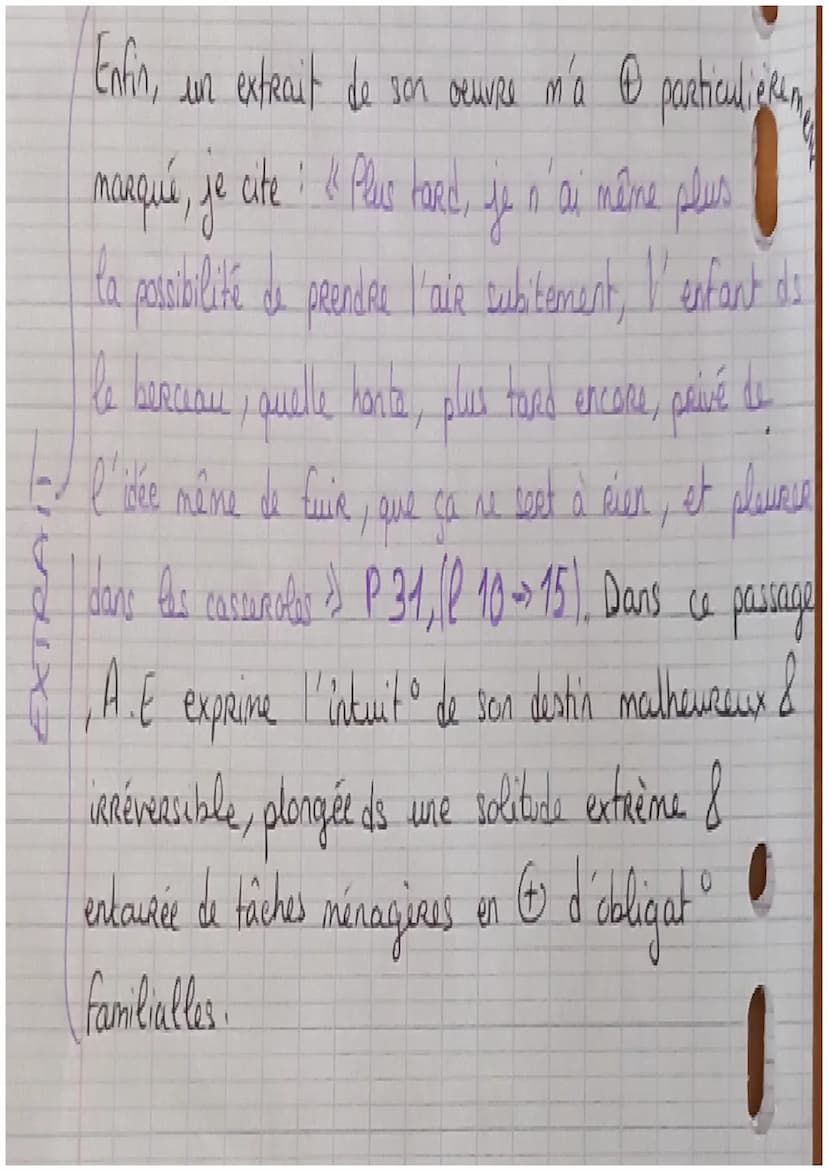 Enfin, un extrait de son oeuvre m'a ⊕ particulièrement
marqué, je cite : « Plus tard, je n'ai même plus
la possibilité de prendre l'air subitement, l'enfant ds
le berceau, quelle honte, plus tard encore, privé de
l'idée même de fuir, que ça ne sert à rien, et pleurer
dans les casseroles » P 31, (l 10 → 15). Dans ce passage
, A.E exprime l'intuit° de son destin malheureux &
irréversible, plongée ds une solitude extrème &
entourée de tâches ménagères en ⊕ d'obligat°
familialles.
EXTRAIT